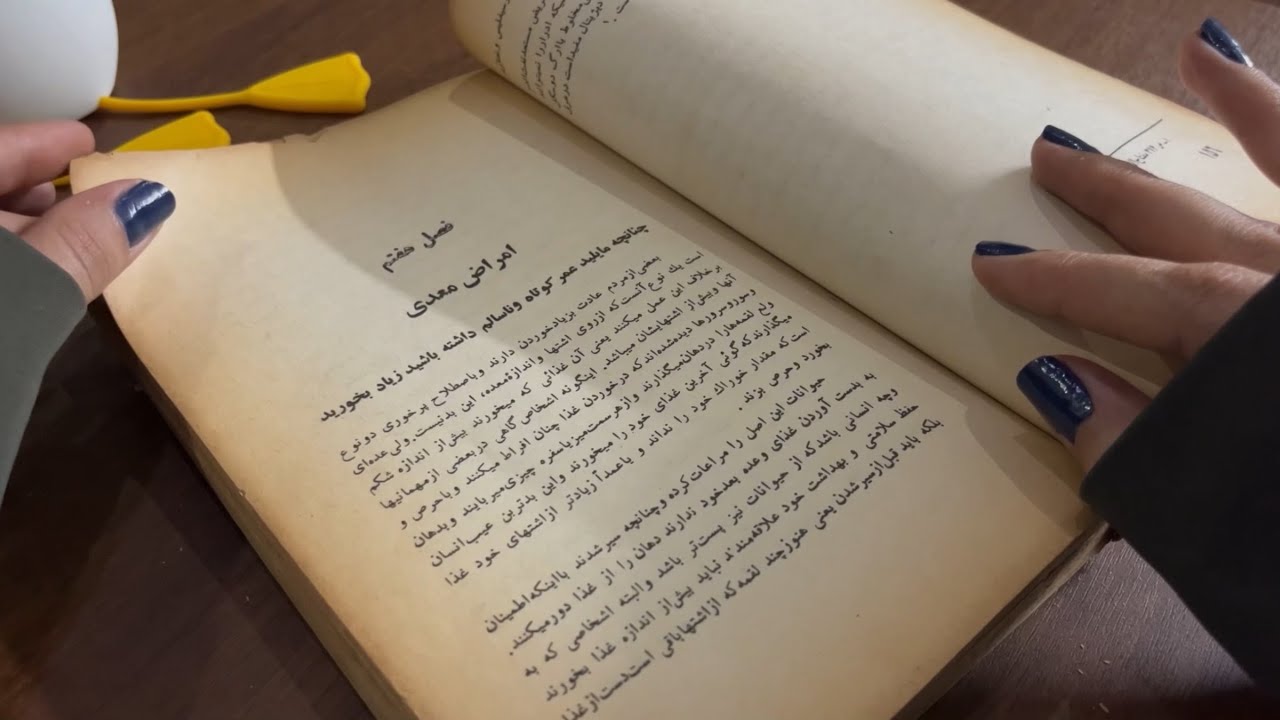 فصل هفتم
امراض معدی
چنانچه مایلید عمر کوتاه وناسالم داشته باشید زیاد بخورید
بعضی‌ازمردم عادت بزیادخوردن دارند وباصطلاح پرخوری دونوع
است یك نوع آنست که ازروی اشتها واندازه‌معده، این بدنیست‌ولی‌عده‌ای
برخلاف این عمل میکنند یعنی آن غذائی که میخورند بیش‌از اندازه شکم
آنها وبیش‌از اشتهایشان میباشد. اینگونه اشخاص گاهی دربعضی ازمهمانیها
وسوروسرورها دیده‌شده‌اندکه درخوردن غذا چنان افراط میکنند وباحرص و
ولع لقمه‌هارا دردهان‌میگذارند وازهرسمت‌میزیاسفره چیزی‌میربایند وبدهان
میگذارندکه‌گوئی آخرین غذای خود را میخورند واین بدترین عیب‌انسان
است‌که مقدار خوراك خود را نداند و یاعمدآ زیادتر ازاشتهای خود غذا
بخورد وحرص بزند.
حیوانات این اصل را مراعات‌کرده وچنانچه سیرشدند بااینکه‌اطمینان
به بدست آوردن غذای وعده بعدخود ندارند دهان را از غذا دورمیکنند.
وچه انسانی باشدکه از حیوانات نیز پست‌تر باشد والبته اشخاصی که به
حفظ سلامتی و بهداشت خود علاقه‌مندند نباید بیش‌از اندازه غذا بخورند
بلکه باید قبل‌ازسیرشدن یعنی هنوزچند لقمه‌که ازاشتهاباقی است‌دست‌ازغذا